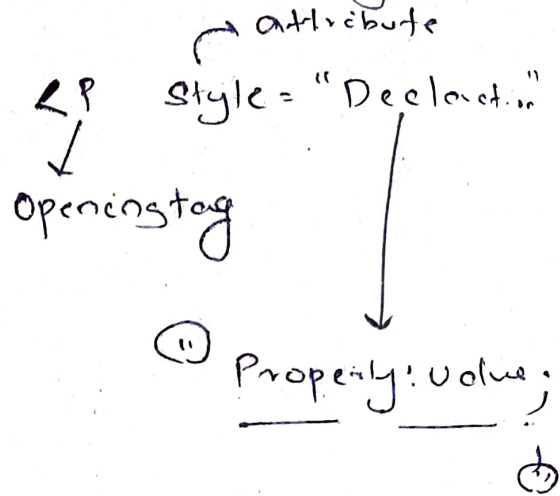 attribute
<P style = "Declarat.."
Opening tag
"
Property: value;